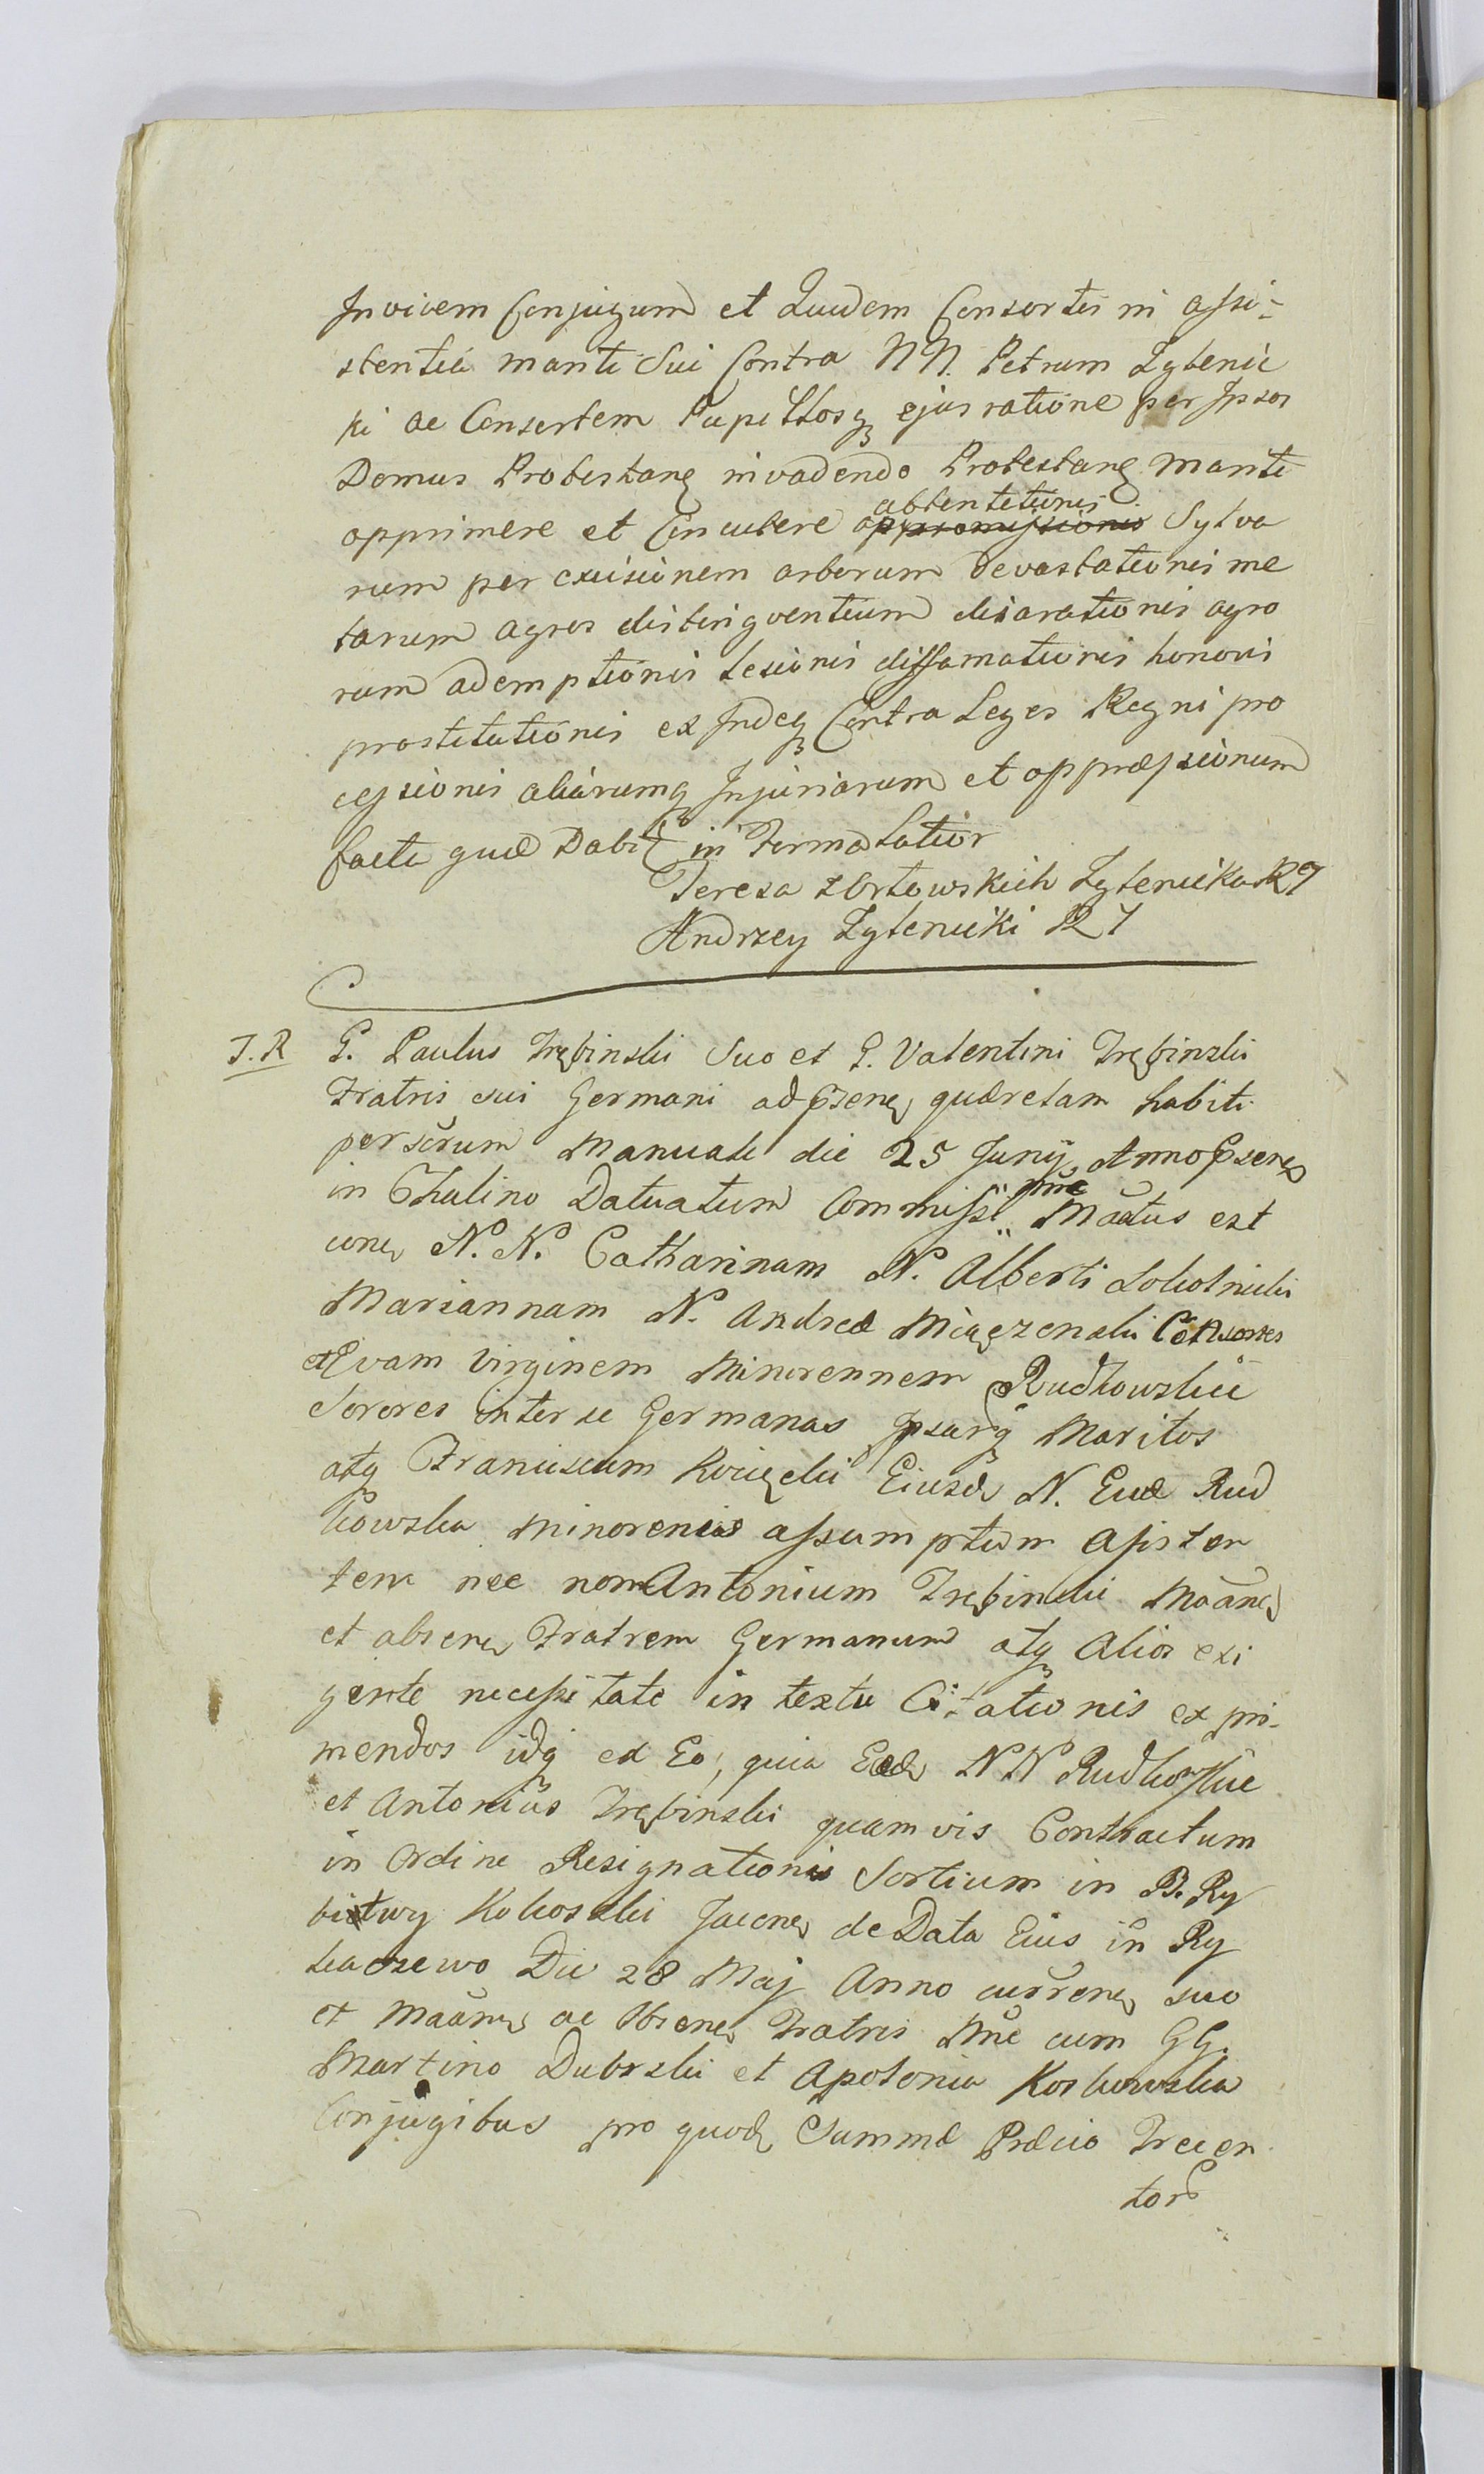 Invicem Conjugum et Quidem Consortis in assi=
stentia mariti Sui Contra NN. Petrum Zytenic
ki ac Consortem Pupillosq ejus ratione per Ipsos
Domus Protestan invadendo Protestan mariti
opprimere et Concutere attentationis Sylva
rum per excisionem arborum devastationis me
tarum agros distingventium disarationis agro
rum ademptionis lesionis diffamationis honoris
prostitutionis ex Indeq Contra Leges Regni pro
cessionis aliarumq Injuriarum et oppraessionum
facti quae Dabit in Forma Latior
Teresa z Ortowskich Zytenicka
Andrzey Zytenicki
J. R G. Paulus Trębinski Suo et G. Valentini Trębinski
Fratris sui Germani ad psenq quaerelam habiti
per scrum Manuale die 25 Junij Anno psenq
in Chalino Datuatum Commissi nne Maŏtus est
conq N. N. Catharinam N. Alberti Lokotnicki
Mariannam N. Andreae Mięczenski Consortes
et Evam Virginem Minorennem Rudkowskie
Sorores inter se Germanas Ipsarq Maritos
atq Franciscum Kocięcki Eiusd N. Evae Rud
kowska Minorenis assumptum assisten
tem nec non Antonium Trębinski Maanq
et absenq Fratrem Germanum atq Alios exi
gente necessitate in textu Citationis expri-
mendos idq ex Eo, quia Eaed NN Rudkowskie
et Antonius Trębinski quamvis Contractum
in Ordine Resignationis Sortium in B. Ry
bitwy Kokoszki Jacenq de Data Eius in Ry
kaczewo Die 28 Maj Anno currenq suo
et Maanq ac Absenq Fratris Nne cum GG.
Martino Dubrski et Apolonia Koskowska
Conjugibus pro quod Summae Praecio Trecen
tor